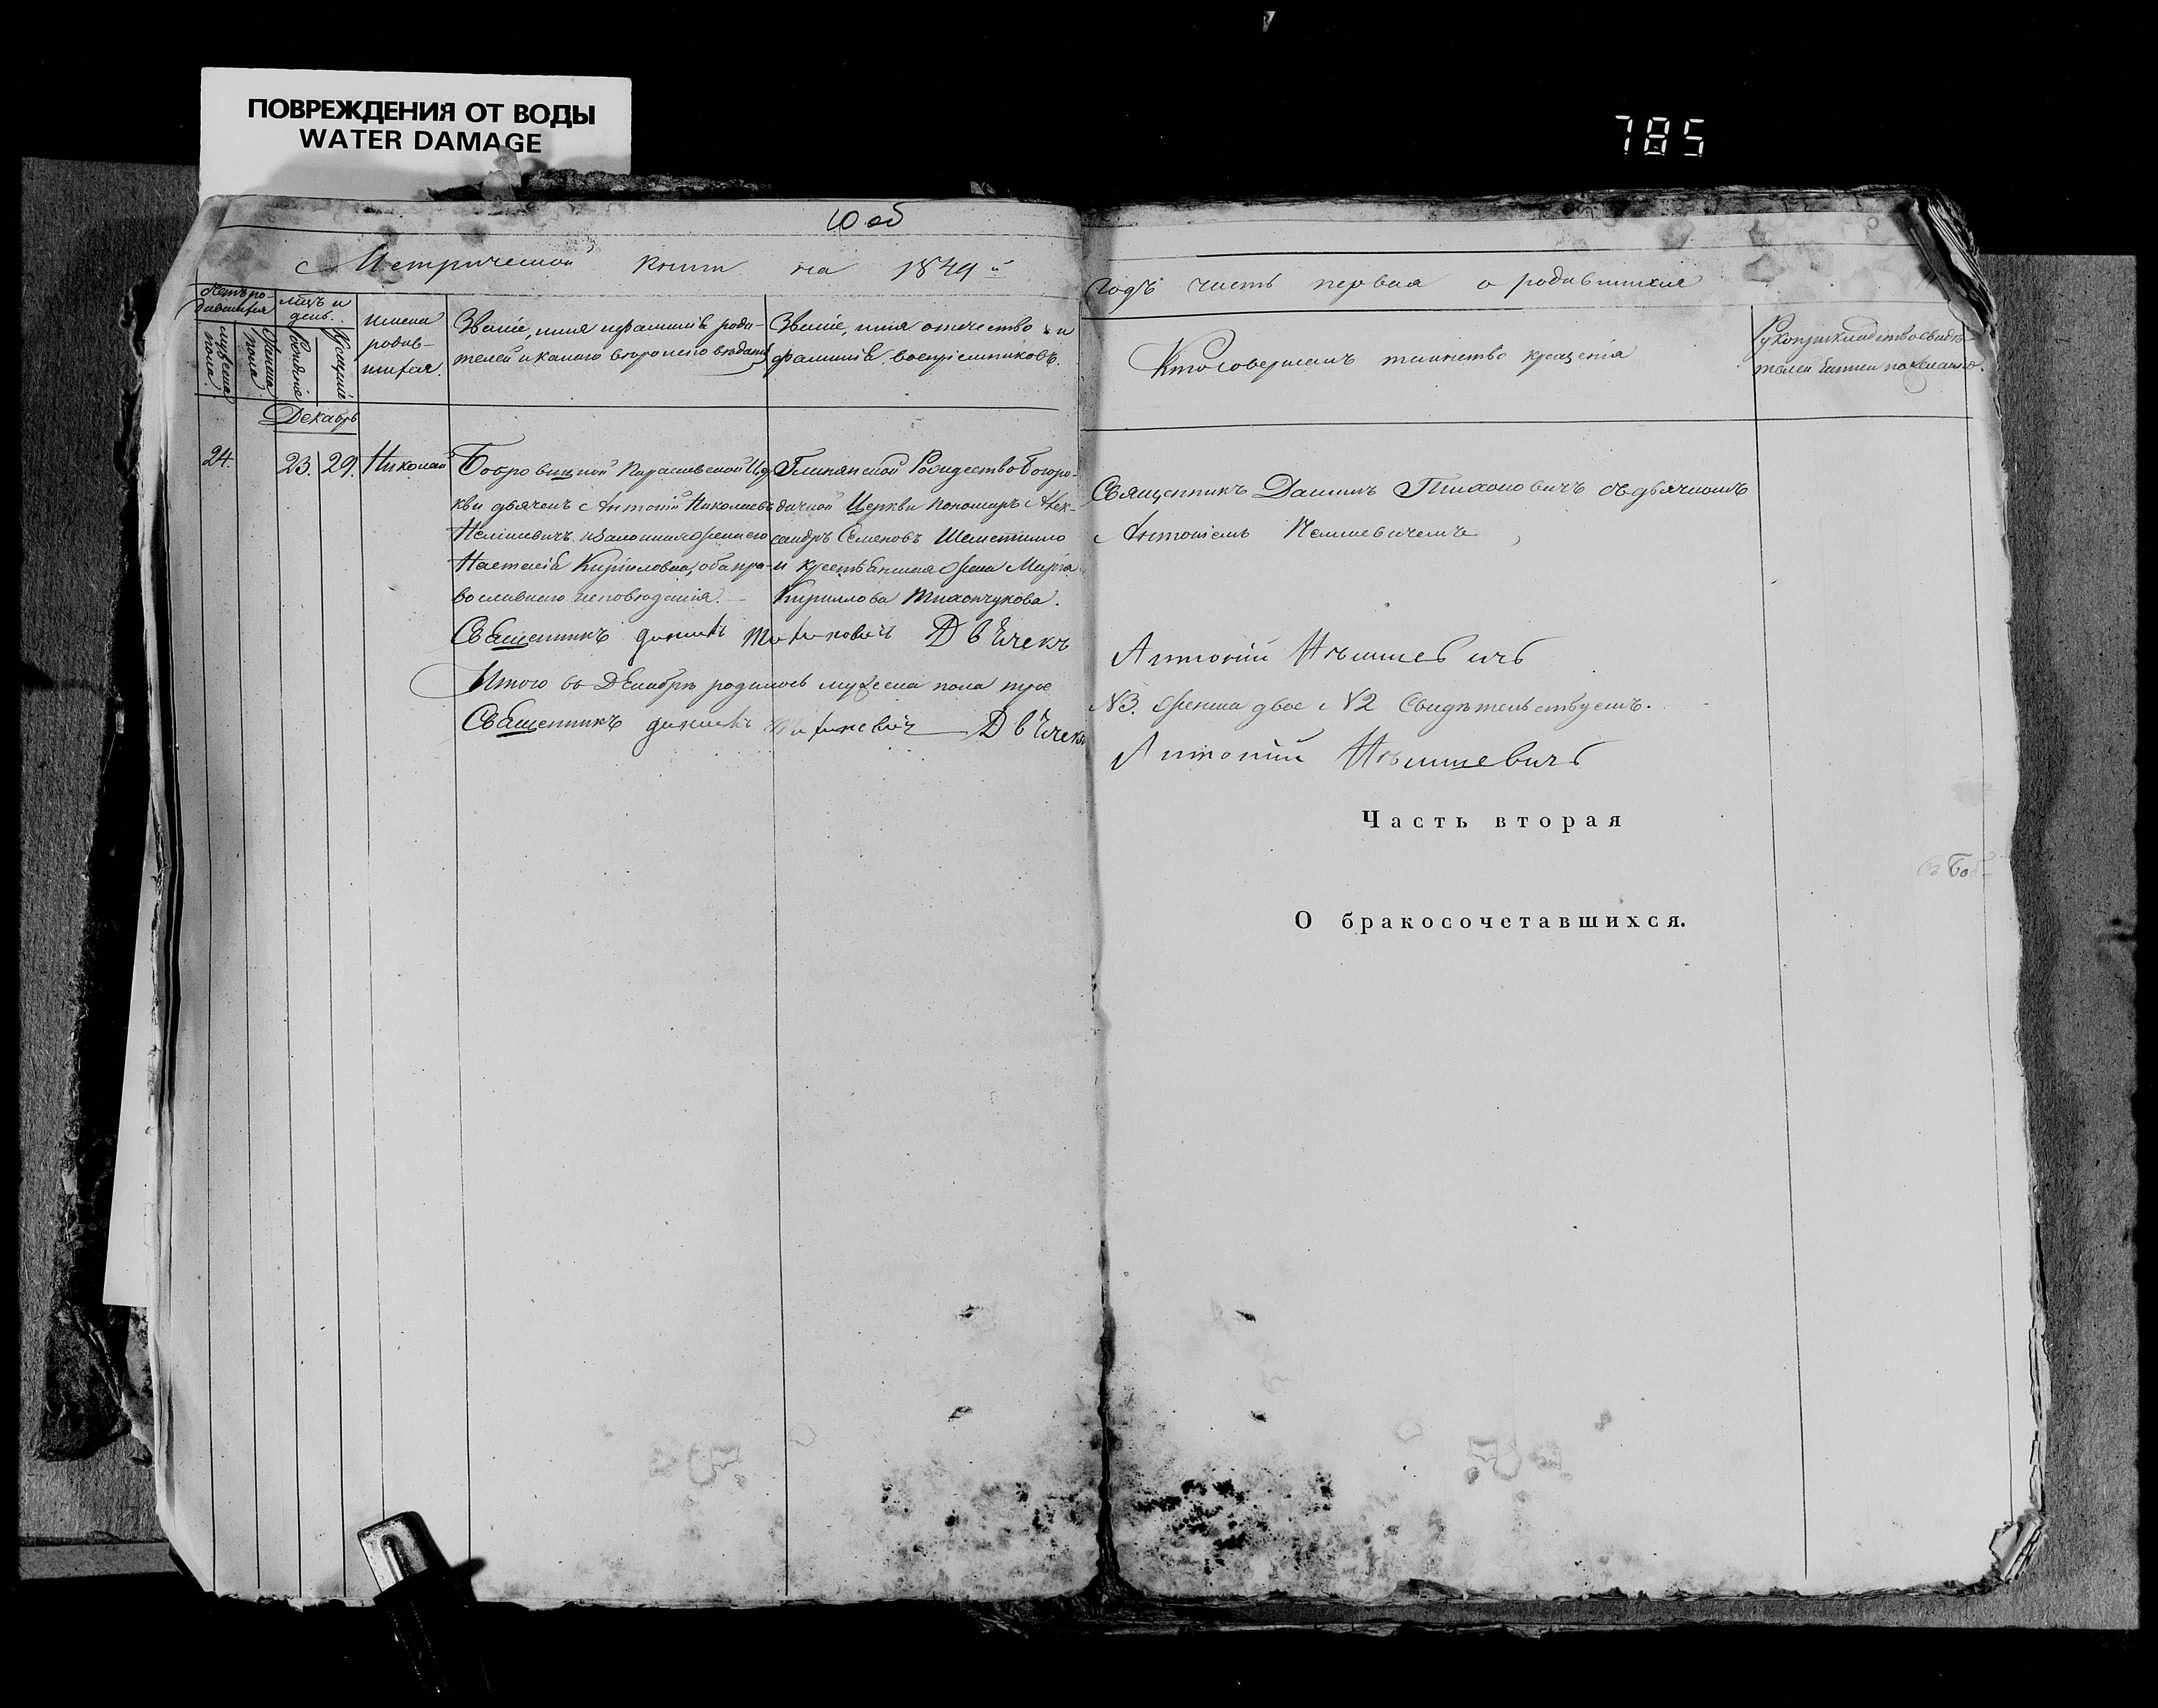 ПОВРЕЖДЕНИЯ ОТ ВОДЫ
WATER DAMAGE
785
10 об
Метрической книги на 1849й
годъ часть первая о родившихся
Счетъ родившихся
мужеска пола.
женска пола.
мцъ и день.
рожденія
крещенія
имена родив-
шихся.
Званіе, имя и фамилія роди-
телей и какого вѣроисповѣданія
Званіе, имя отечество и
фамилія воспріемниковъ.
Кто совершалъ таинство крещенія
Рукоприкладство свидѣ-
телей записи по желанію.
Декабрь
24. 23. 29. Николай
Бобровицкой Параскевской Це-
кви дьячекъ Антоній Николаевъ
и законная жена его
Настасія Кирилловна, оба пра-
вославнаго исповѣданія.
Глинянской Рождество Богоро-
дичной Церкви Пономарь Алек-
сандръ Семеновъ Шеметилло
и крестьянина жена Марія
Кириллова Тихончукова.
Священникъ Даніилъ Тихоновичъ съ дьячкомъ
Антоніемъ
Священникъ Даніилъ Тихоновичъ Дьячекъ
Антоній
Итого въ Декабрѣ родилось мужеска пола трое
№3. женска двое №2 Свидѣтельствуемъ.
Священникъ Даніилъ Тихоновичъ Дьячекъ
Антоній
Часть вторая
О бракосочетавшихся.